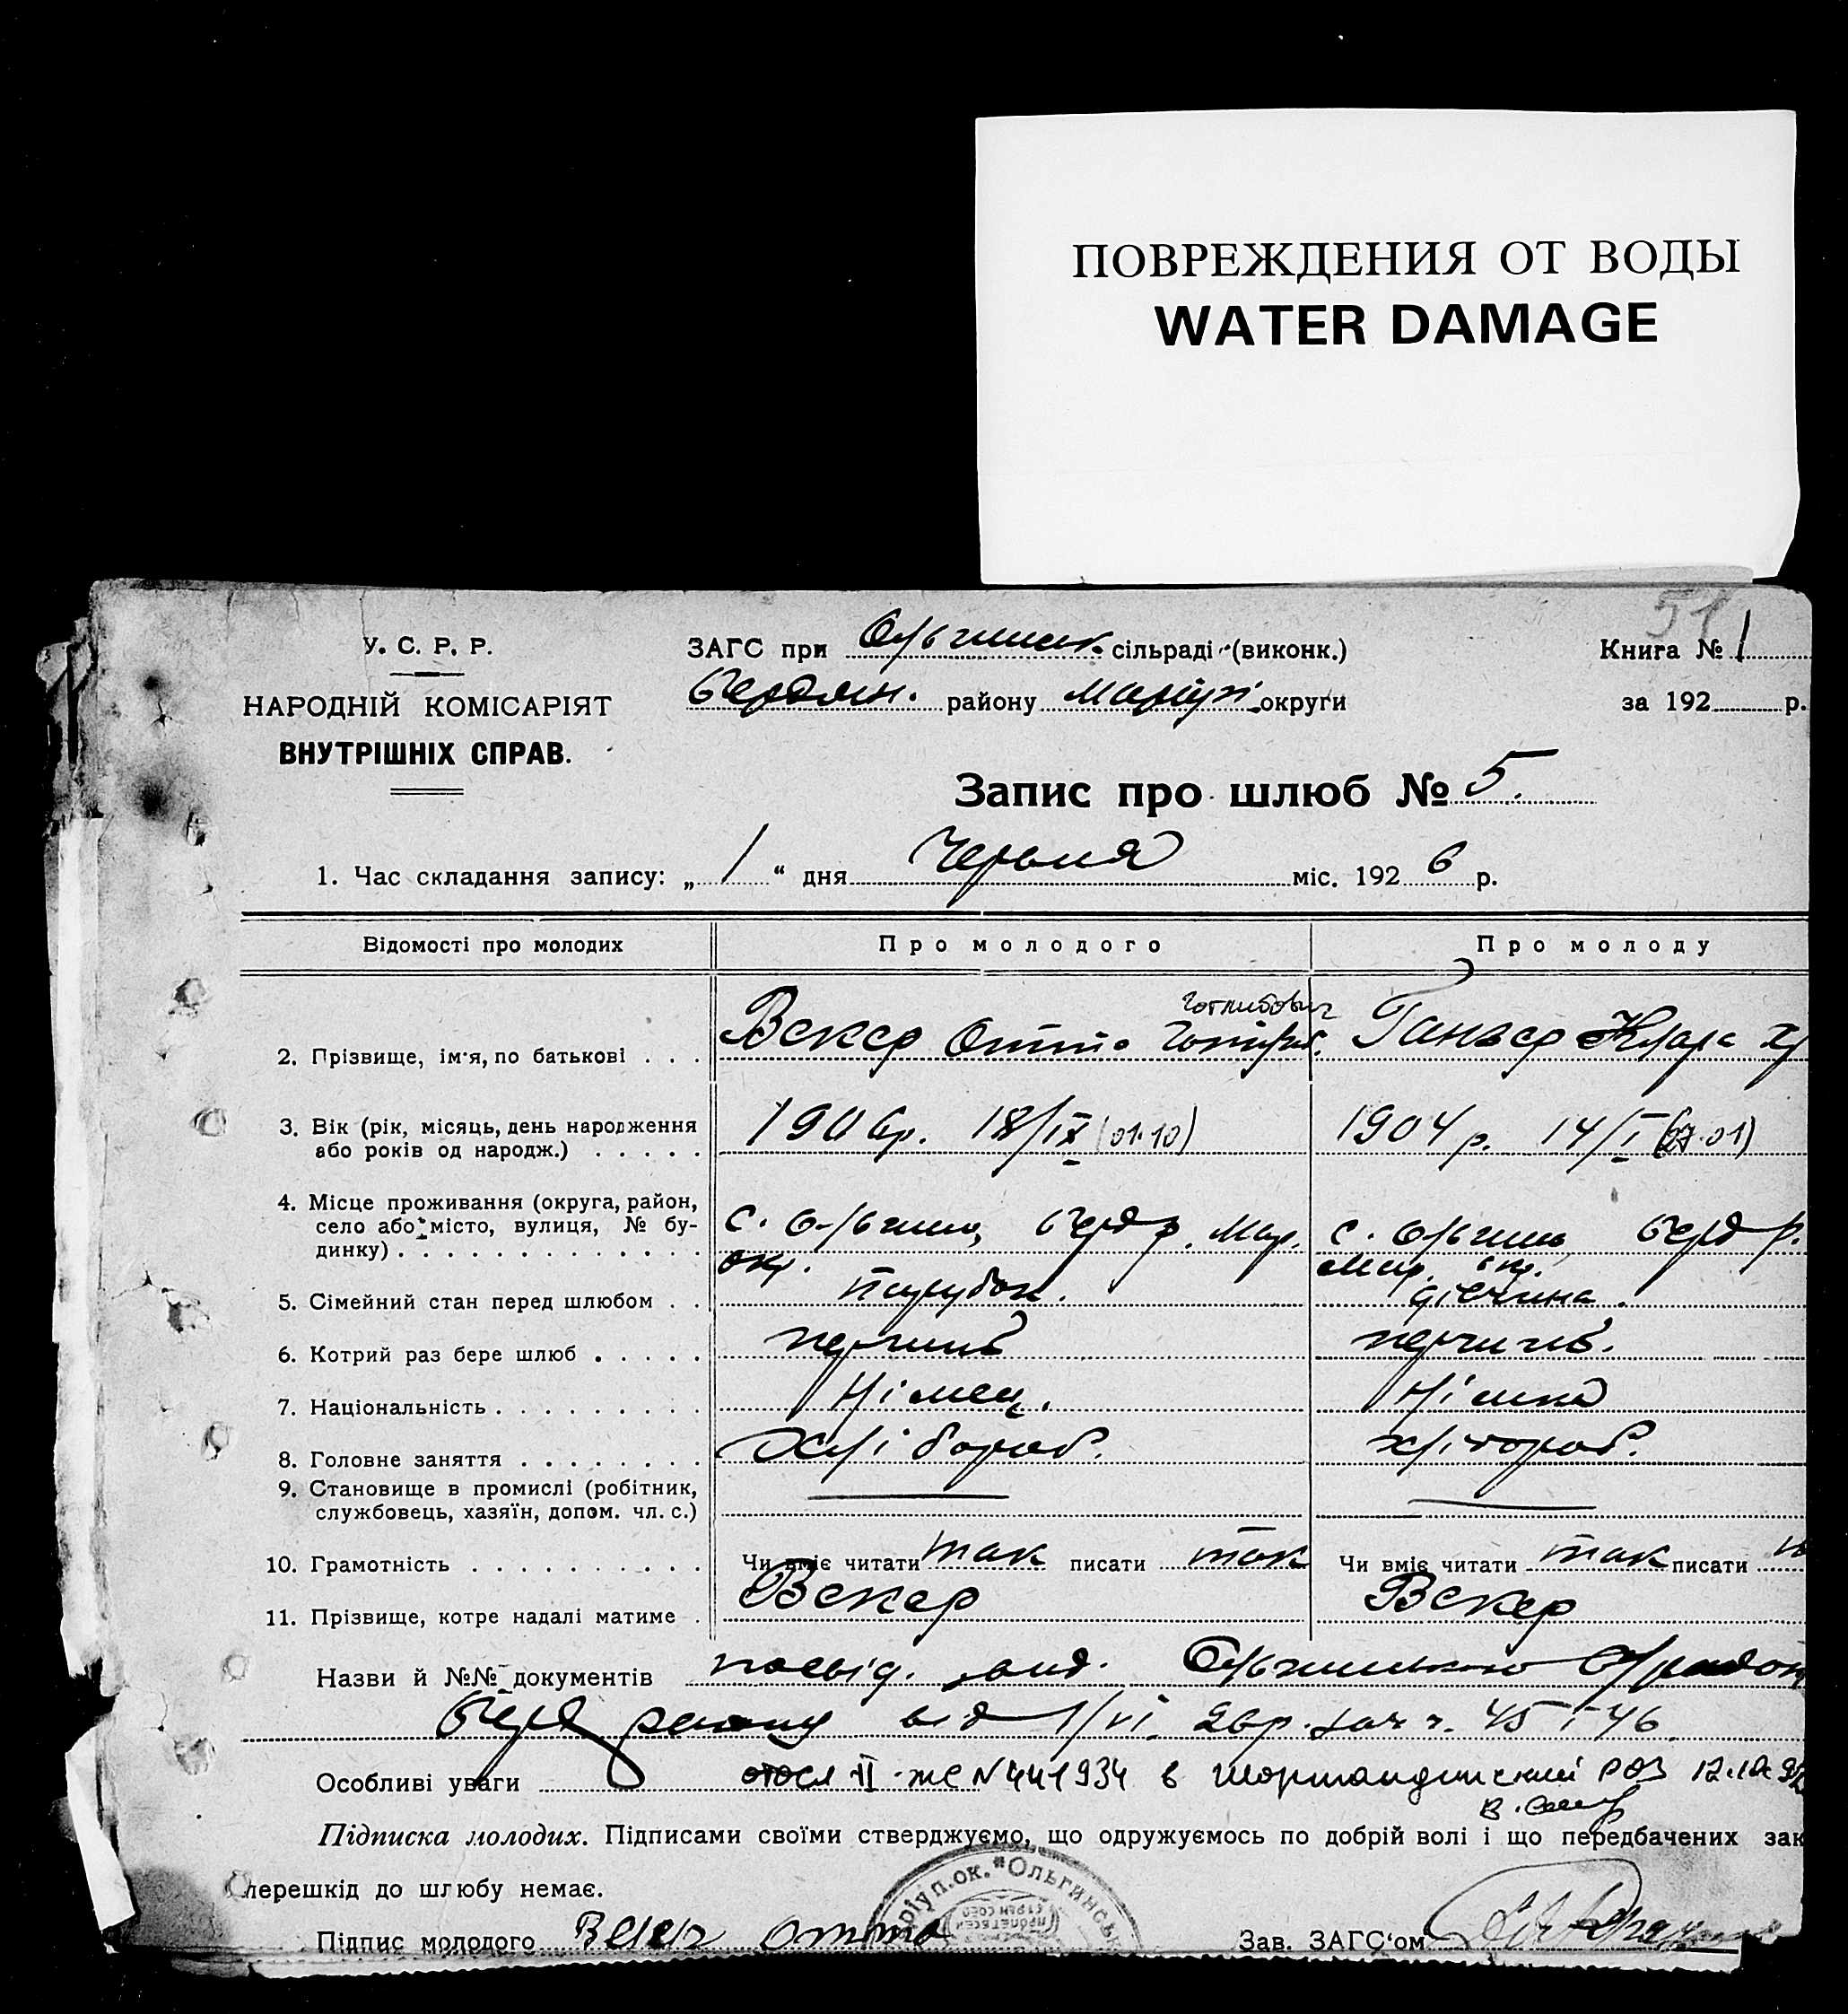 ПОВРЕЖДЕНИЯ ОТ ВОДЫ
WATER DAMAGE
51
У. С. Р. Р.
НАРОДНІЙ КОМІСАРІЯТ
ВНУТРІШНІХ СПРАВ.
ЗАГС при Ольгинськ. сільраді (виконк.)
Бердян. району Маріуп. округи
Книга № 1
за 192 р.
Запис про шлюб № 5.
1. Час складання запису: „ 1 “ дня Червня міс. 1926 р.
Відомості про молодих Про молодого Про молоду
Готлибович
2. Прізвище, ім'я, по батькові . . . Векер Отто Готліб. Ганзер Клара Хр
3. Вік (рік, місяць, день народження
або років од народж.) . . . . . 1906 р. 18/IX (01.10) 1904 р. 14/I (27.01)
4. Місце проживання (округа, район,
село або місто, вулиця, № бу-
динку) . . . . . . . . . . . . . с. Ольгино, Берд р. Мар. окр. с. Ольгино Берд р. Мар. окр.
5. Сімейний стан перед шлюбом . . Парубок. дівчина.
6. Котрий раз бере шлюб . . . . . перший перший.
7. Національність . . . . . . . . . Німец. Німка
8. Головне заняття . . . . . . . . Хлібороб. хлібороб.
9. Становище в промислі (робітник,
службовець, хазяїн, допом. чл. с.)
10. Грамотність . . . . . . . . . . Чи вміє читати так писати так Чи вміє читати так писати
11. Прізвище, котре надалі матиме . Векер Векер
Назви й №№ документів посвід. вид. Ольгинською
Берд району від 1/VI 26 р. за ч. 45 і 46
Особливі уваги II-ЖС № 441934 в Шортандинский РОЗ
Підписка молодих. Підписами своїми стверджуємо, що одружуємось по добрій волі і що передбачених зак
перешкід до шлюбу немає.
ріуп. ок. *Ольгинськ
Підпис молодого Векер Отто Зав. ЗАГС'ом